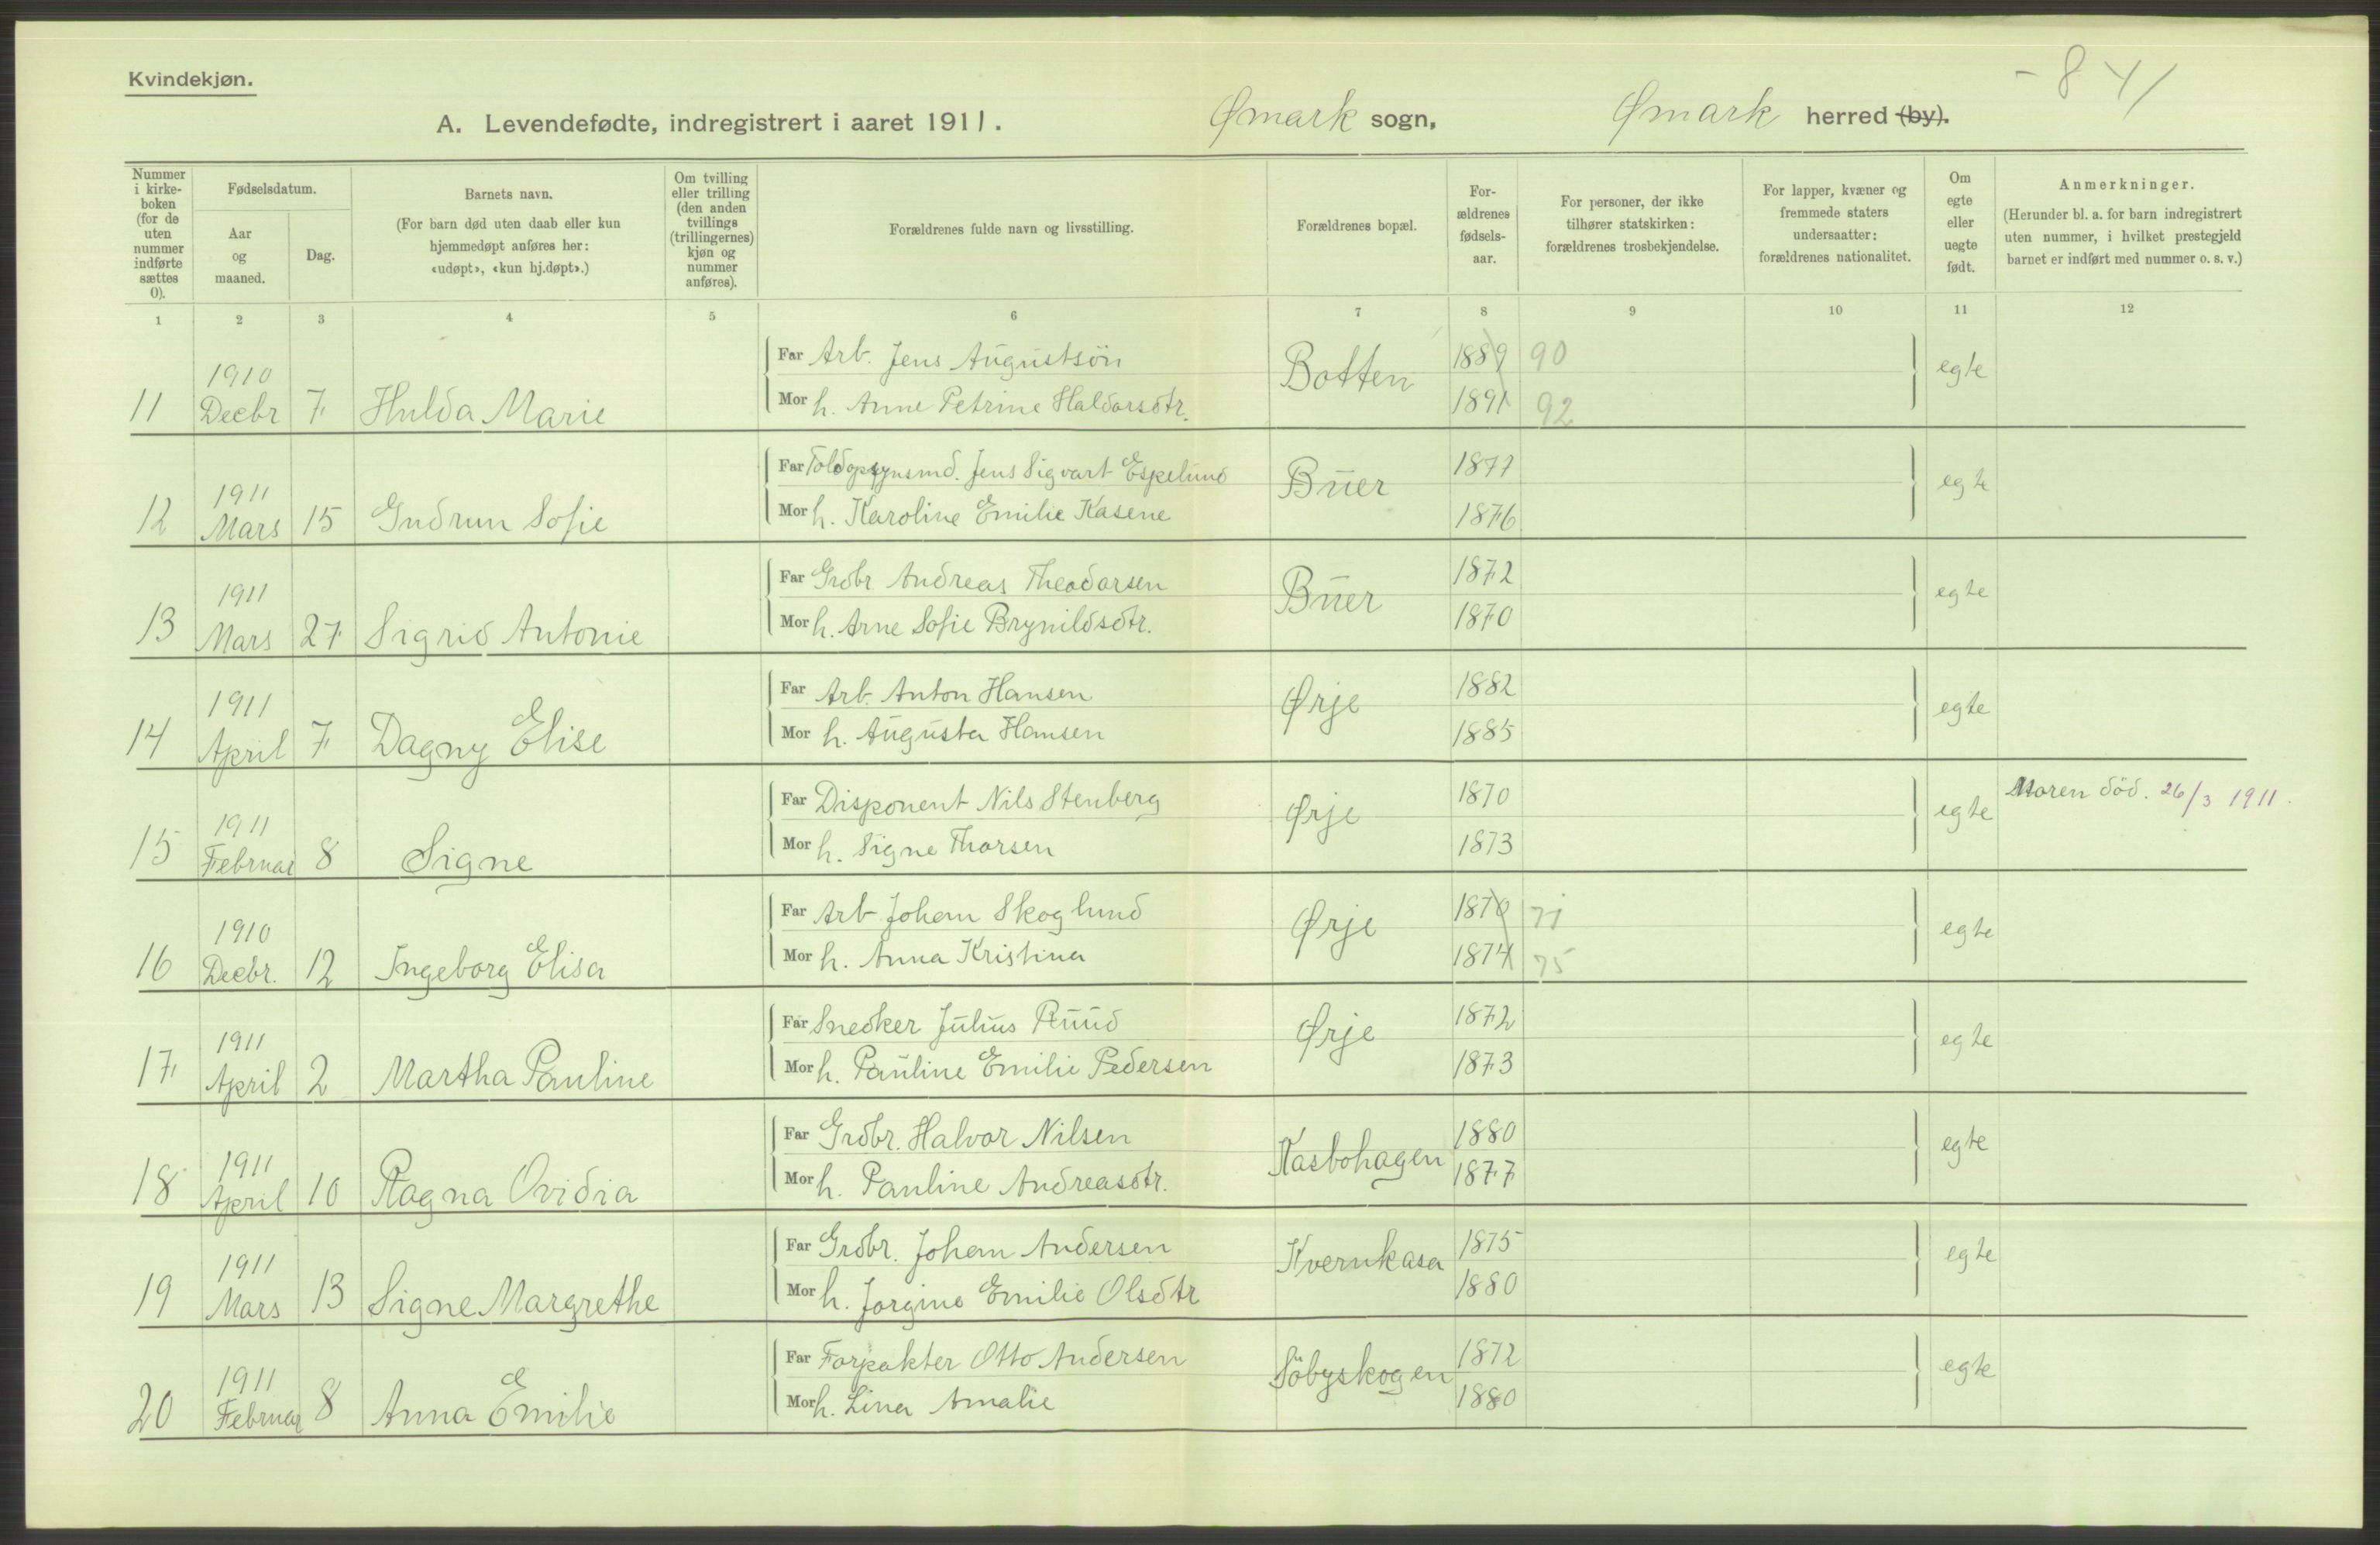 Kvindekjøn.
- 841
A. Levendefødte, indregistrert i aaret 1911. Ømark sogn, Ømark herred (by).
Nummer i kirke-boken (for de uten nummer indførte sættes 0).
Fødselsdatum.
Aar og maaned.
Dag.
Barnets navn.
(For barn død uten daab eller kun hjemmedøpt anføres her: «udøpt», «kun hj.døpt».)
Om tvilling eller trilling (den anden tvillings (trillingernes) kjøn og nummer anføres).
Forældrenes fulde navn og livsstilling.
Forældrenes bopæl.
For-ældrenes fødsels-aar.
For personer, der ikke tilhører statskirken: forældrenes trosbekjendelse.
For lapper, kvæner og fremmede staters undersaatter: forældrenes nationalitet.
Om egte eller uegte født.
Anmerkninger.
(Herunder bl. a. for barn indregistrert uten nummer, i hvilket prestegjeld barnet er indført med nummer o. s. v.)
1 2 3 4 5 6 7 8 9 10 11 12
11 1910 Decbr 7 Hulda Marie
Far Arb. Jens Augustsön Botten 1889 90 egte
Mor h. Anne Petrine Haldorsdtr. 1891 92
12 1911 Mars 15 Gudrun Sofie
Far Toldopsynsmd. Jens Sigvart Espelund Buer 1877 egte
Mor h. Karoline Emilie Kasene 1876
13 1911 Mars 27 Sigrid Antonie
Far Grdbr Andreas Theodorsen Buer 1872 egte
Mor h. Arne Sofie Brynildsdtr. 1870
14 1911 April 7 Dagny Elise
Far Arb. Anton Hansen Ørje 1882 egte
Mor h. Augusta Hansen 1885
15 1911 Februar 8 Signe
Far Disponent Nils Stenberg Ørje 1870 egte Moren död. 26/3 1911.
Mor h. Signe Thorsen 1873
16 1910 Decbr. 12 Ingeborg Elisa
Far Arb Johan Skoglund Ørje 1870 71 egte
Mor h. Anna Kristina 1874 75
17 1911 April 2 Martha Pauline
Far Snedker Julius Ruud Ørje 1872 egte
Mor h. Pauline Emilie Pedersen 1873
18 1911 April 10 Ragna Ovidia
Far Grdbr. Halvor Nilsen Kasbohagen 1880 egte
Mor h. Pauline Andreasdtr. 1877
19 1911 Mars 13 Signe Margrethe
Far Grdbr. Johan Andersen Kvernkasa 1875 egte
Mor h. Jorgine Emilie Olsdtr 1880
20 1911 Februar 8 Anna Emilie
Far Forpakter Otto Andersen Söbyskogen 1872 egte
Mor h. Lina Amalie 1880